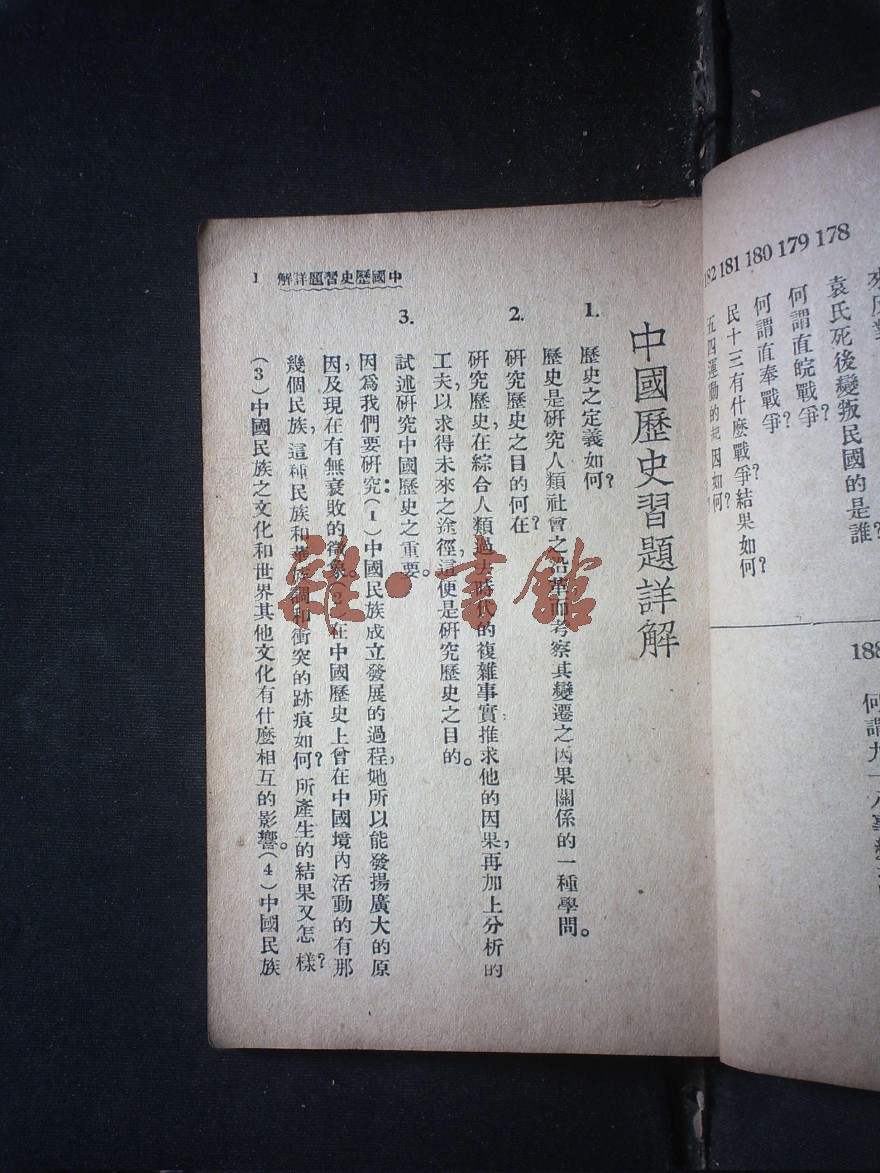 178
袁氏死後變叛民國的是誰?
179
何謂直皖戰爭?
180
何謂直奉戰爭?
181
民十三有什麽戰爭?結果如何?
182
五四運動的起因如何?
188
何謂九一八事變
中國歷史習題詳解
1.
歷史之定義如何?
歷史是研究人類社會之沿革而考察其變遷之因果關係的一種學問。
2.
研究歷史之目的何在?
研究歷史,在綜合人類過去時代的複雜事實,推求他的因果,再加上分析的
工夫,以求得未來之途徑,這便是研究歷史之目的。
3.
試述研究中國歷史之重要。
因爲我們要研究:(1)中國民族成立發展的過程,她所以能發揚廣大的原
因,及現在有無衰敗的徵象。(2)在中國歷史上曾在中國境內活動的有那
幾個民族,這種民族和華族調和衝突的跡痕如何?所產生的結果又怎樣?
(3)中國民族之文化和世界其他文化有什麽相互的影響。(4)中國民族
中國歷史習題詳解 1
雜·書館